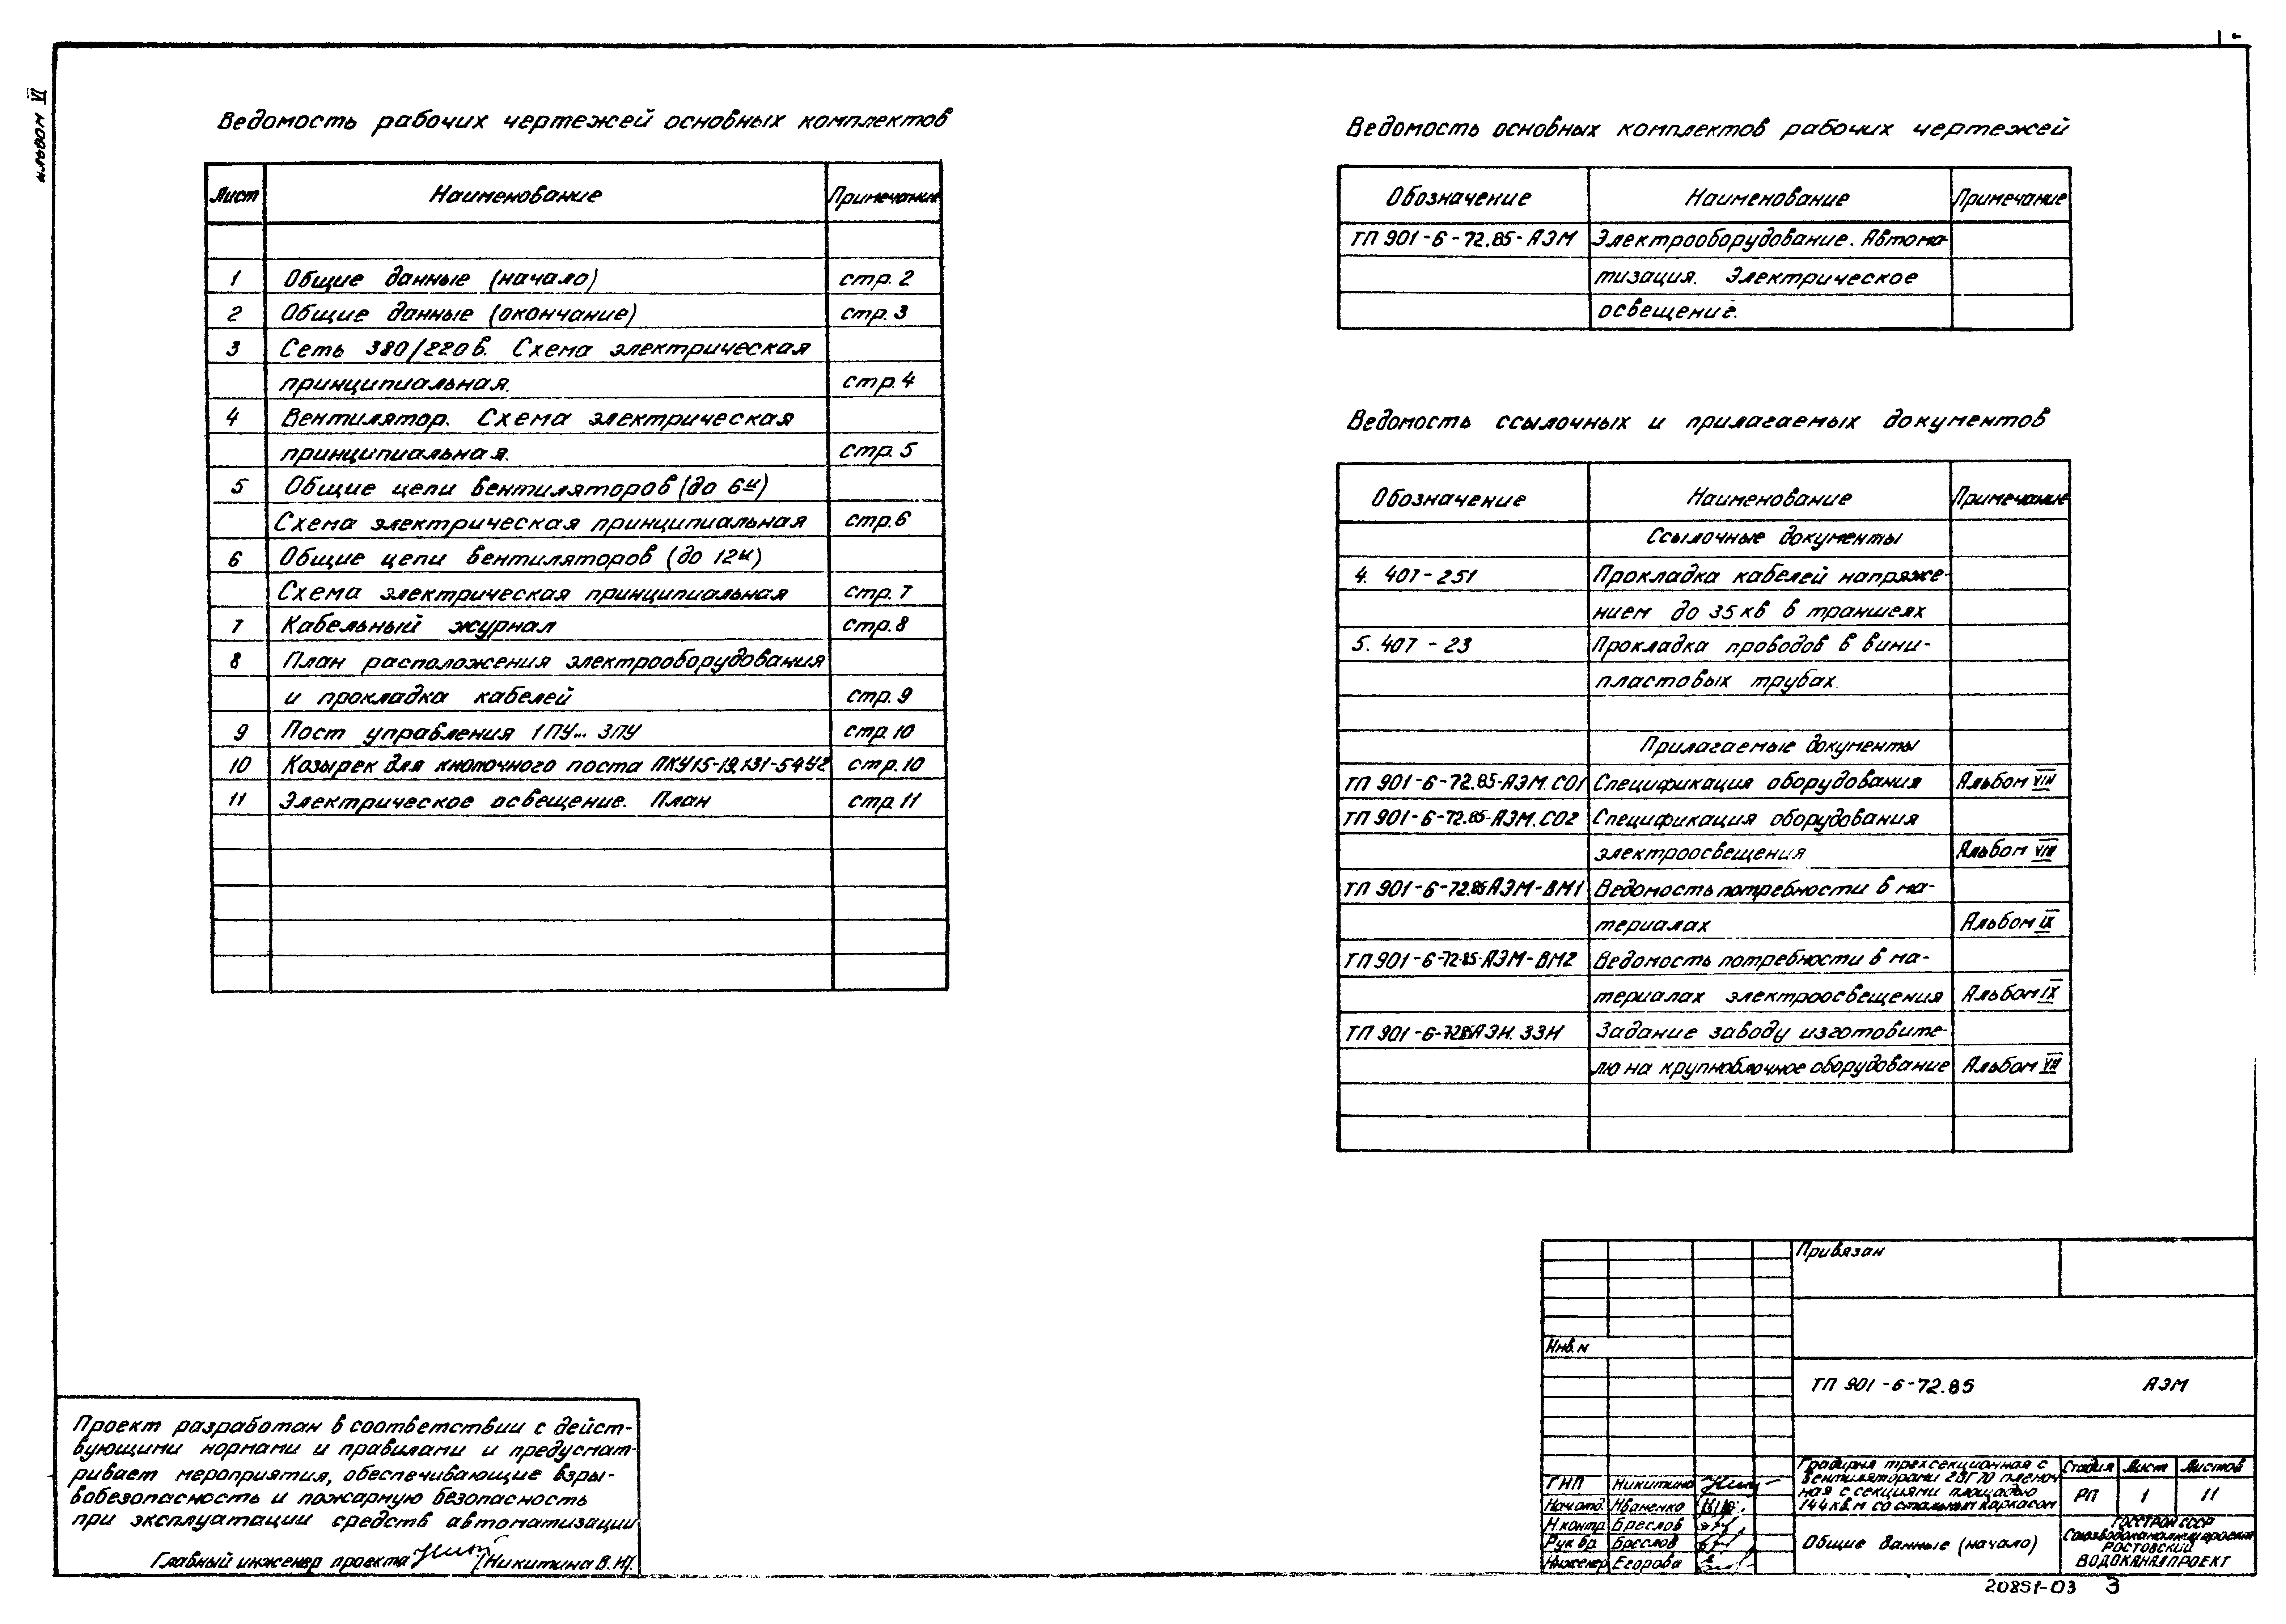 Альбом VI
Ведомость рабочих чертежей основных комплектов
Лист Наименование Примечание
1 Общие данные (начало) стр. 2
2 Общие данные (окончание) стр. 3
3 Сеть 380/220в. Схема электрическая
принципиальная. стр. 4
4 Вентилятор. Схема электрическая
принципиальная. стр. 5
5 Общие цепи вентиляторов (до 6и)
Схема электрическая принципиальная стр. 6
6 Общие цепи вентиляторов (до 12и)
Схема электрическая принципиальная стр. 7
7 Кабельный журнал стр. 8
8 План расположения электрооборудования
и прокладка кабелей стр. 9
9 Пост управления 1ПУ... 3ПУ стр. 10
10 Козырек для кнопочного поста ПКУ15-19.131-54У2 стр. 10
11 Электрическое освещение. План стр 11
Ведомость основных комплектов рабочих чертежей
Обозначение Наименование Примечание
ТП 901-6-72.85-АЭМ Электрооборудование. Автома-
тизация. Электрическое
освещение.
Ведомость ссылочных и прилагаемых документов
Обозначение Наименование Примечание
Ссылочные документы
4. 407-251 Прокладка кабелей напряже-
нием до 35кв в траншеях
5. 407-23 Прокладка проводов в вини-
пластовых трубах
Прилагаемые документы
ТП 901-6-72.85-АЭМ.СО1 Спецификация оборудования Альбом VIII
ТП 901-6-72.85-АЭМ.СО2 Спецификация оборудования
электроосвещения Альбом VIII
ТП 901-6-72.85АЭМ-ВМ1 Ведомость потребности в ма-
териалах Альбом IX
ТП 901-6-72.85-АЭМ-ВМ2 Ведомость потребности в ма-
териалах электроосвещения Альбом IX
ТП 901-6-72.85АЭМ.ЗЗИ Задание заводу изготовите-
лю на крупноблочное оборудование Альбом VII
Проект разработан в соответствии с дейст-
вующими нормами и правилами и предусмат-
ривает мероприятия, обеспечивающие взры-
вобезопасность и пожарную безопасность
при эксплуатации средств автоматизации
Главный инженер проекта /Никитина В.И/.
Привязан
Инв.н
ТП 901-6-72.85 АЭМ
ГИП Никитина
Нач.отд. Иваненко
Н.контр Бреслов
Рук бр Бреслов
Инженер Егорова
Градирня трехсекционная с
вентиляторами 2ВГ70 пленоч
ная с секциями площадью
144 кв.м со стальным каркасом
Стадия Лист Листов
РП 1 11
Общие данные (начало)
ГОССТРОЙ СССР
Союзводоканалниипроект
РОСТОВСКИЙ
ВОДОКАНАЛПРОЕКТ
20851-03 3